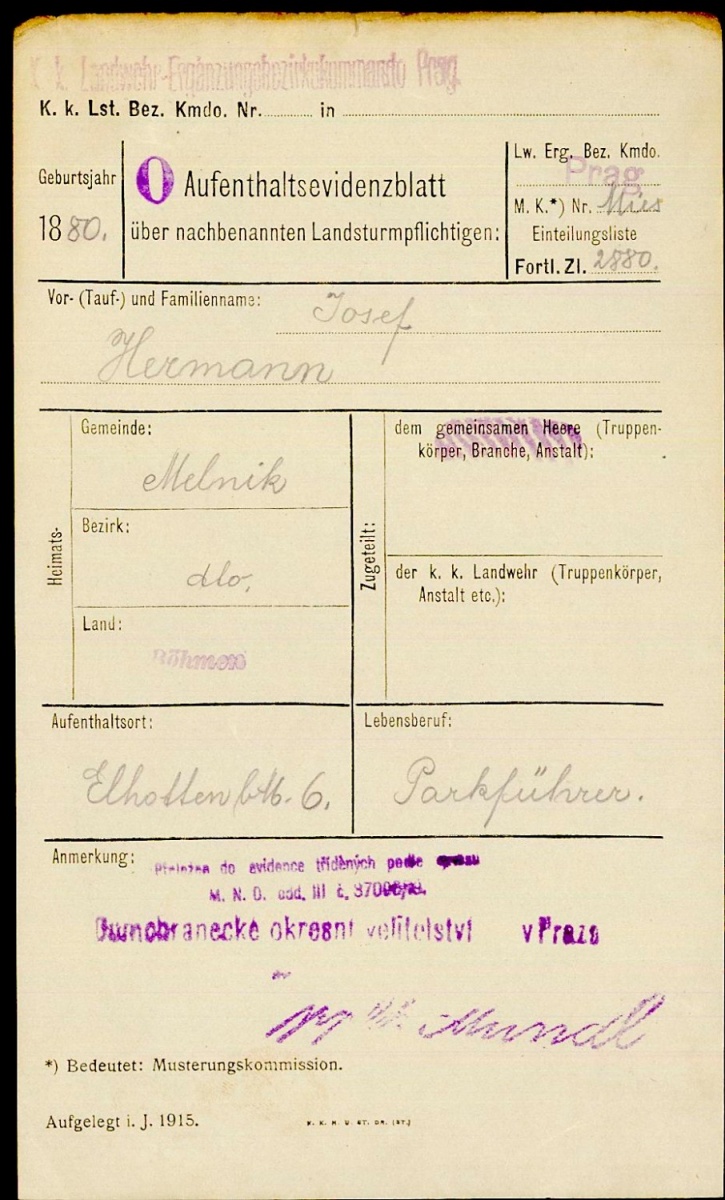 K. k. Landwehr-Ergänzungsbezirkskommando Prag.
K. k. Lst. Bez. Kmdo. Nr. in
Geburtsjahr
1880.
0 Aufenthaltsevidenzblatt
über nachbenannten Landsturmpflichtigen:
Lw. Erg. Bez. Kmdo.
Prag
M. K.*) Nr. Mies
Einteilungsliste
Fortl. Zl. 2880.
Vor- (Tauf-) und Familienname: Josef
Hermann
Heimats-
Gemeinde:
Melnik
Bezirk:
dto.
Land:
Böhmen
Zugeteilt:
dem gemeinsamen Heere (Truppen-
körper, Branche, Anstalt):
der k. k. Landwehr (Truppenkörper,
Anstalt etc.):
Aufenthaltsort:
Elhotten 6.
Lebensberuf:
Parkführer.
Anmerkung:
do evidence tříděných podle
M. N. O. odd. III č.
Domobranecké okresní velitelství v Praze
Mundl
*) Bedeutet: Musterungskommission.
Aufgelegt i. J. 1915.
K. K. H. U. ST. DR. (ST.)